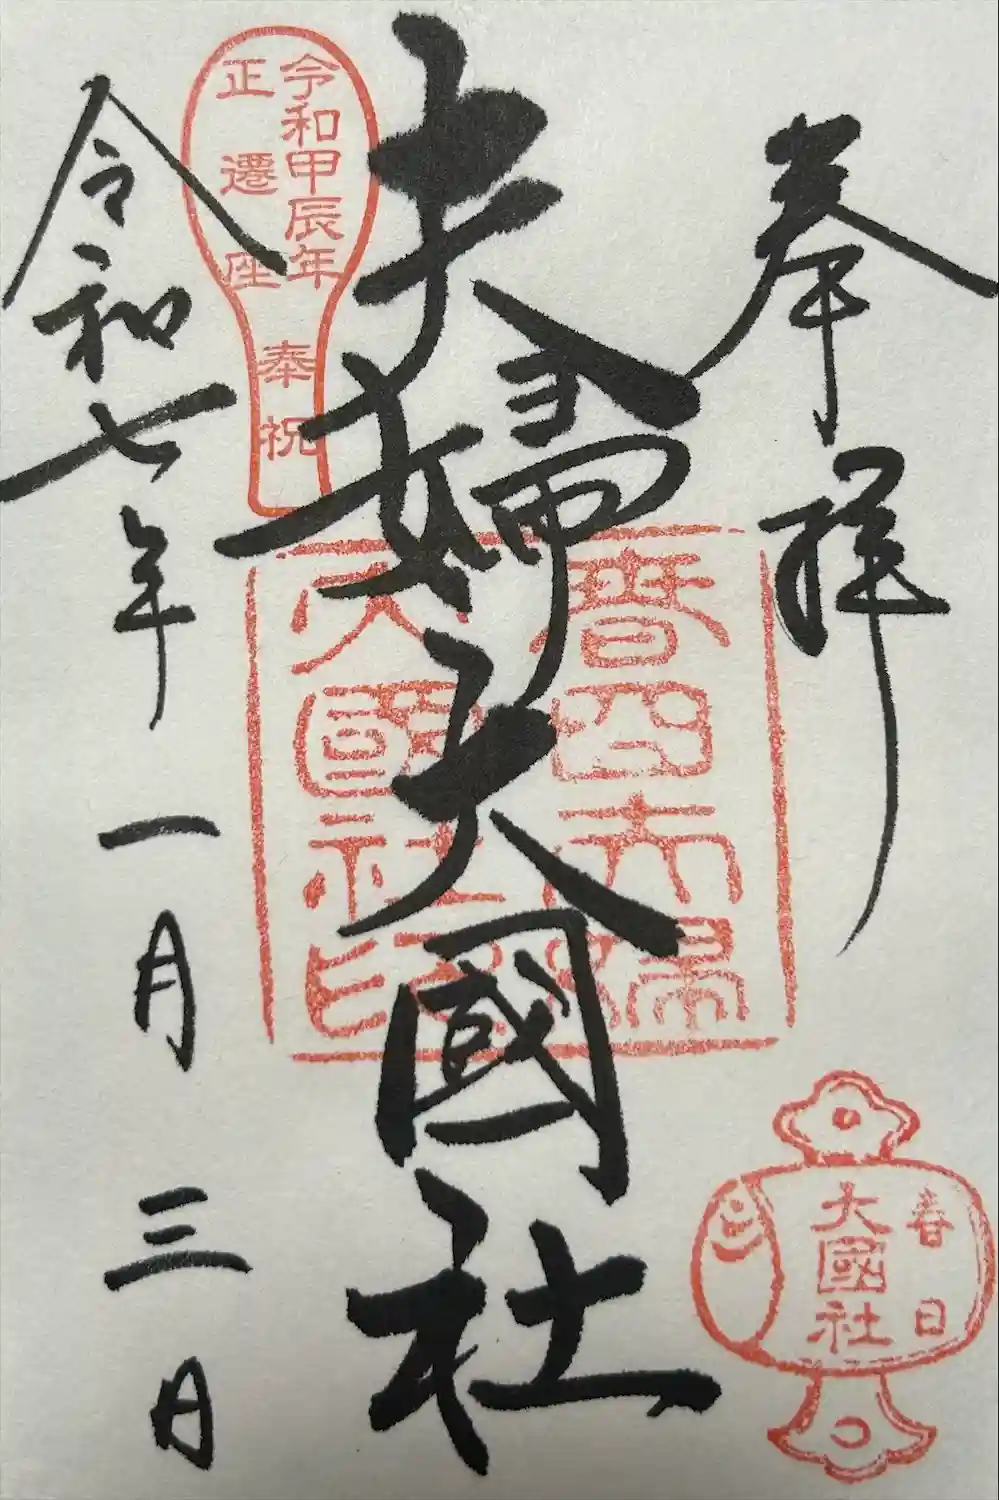 奉拝
春日
大國社
夫婦大國社
春日夫婦
大國社印
令和甲辰年
正遷座
奉祝
令和七年一月三日